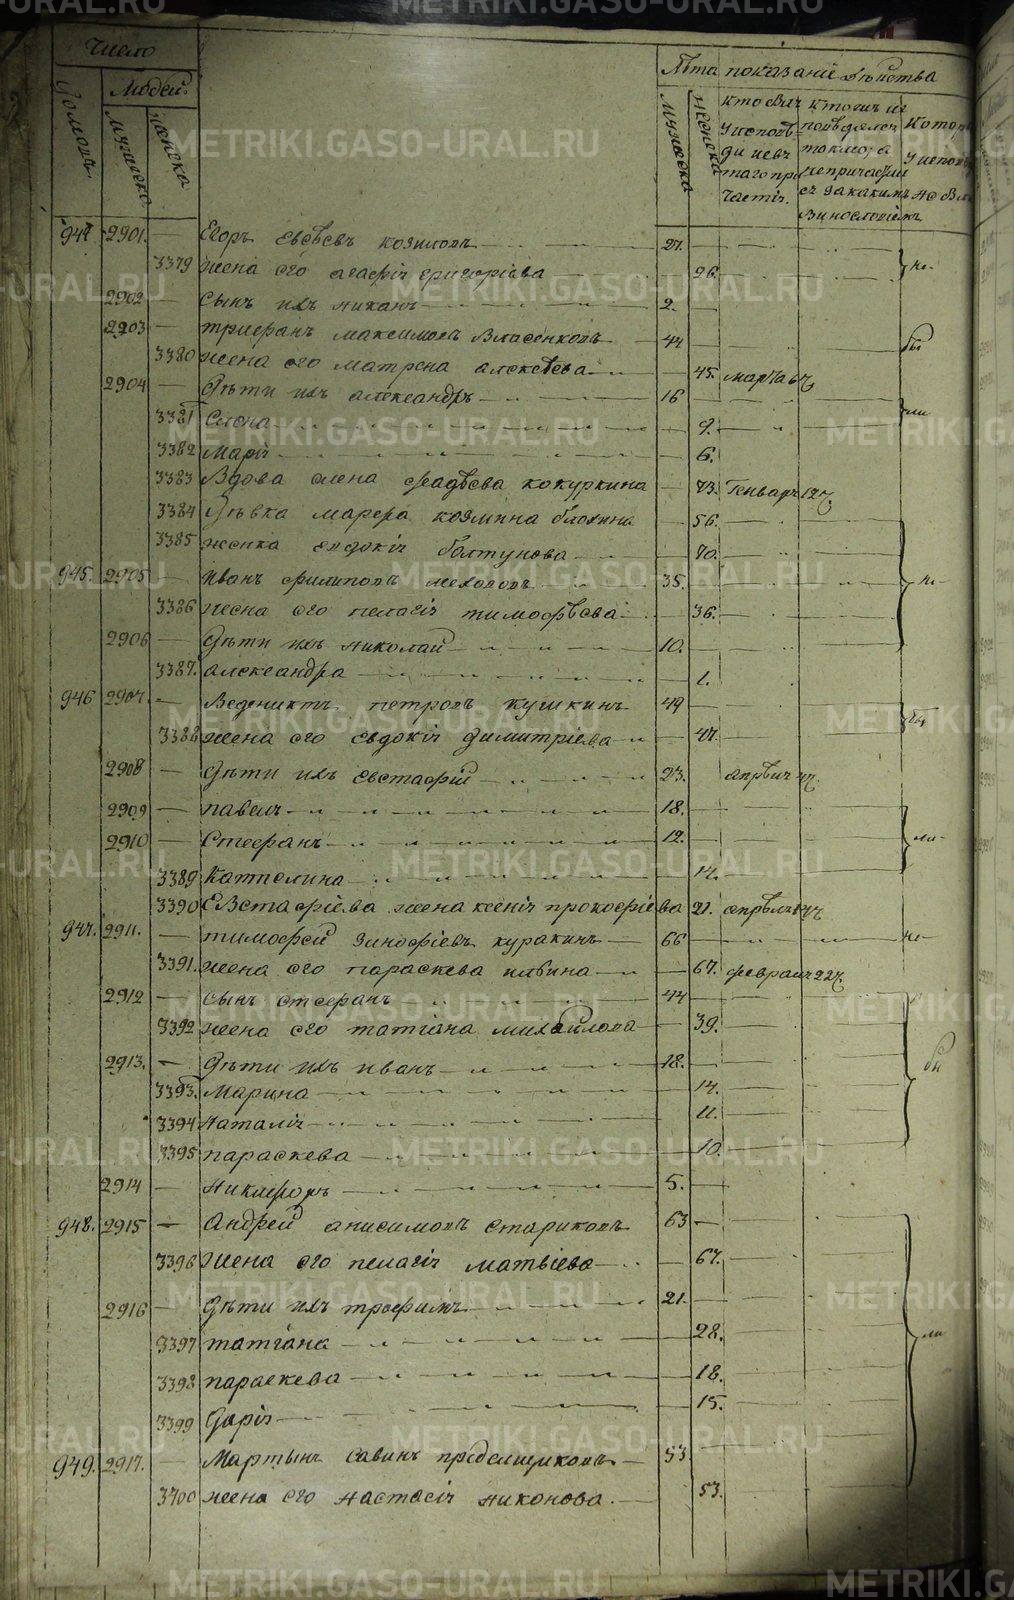 Число
Лѣта показаніе дѣйства
Домовъ
Людей
мужеска
женска
мужеска
женска
944 2901. — Егоръ Евсѣевъ козиловъ 27.
3379 жена его агафія григоріева 26. не-
2902 — сынъ ихъ никанъ 2.
2903 — трифанъ максимовъ Власенковъ 44 бы
3380 жена его матрена алексѣева 45. марта 6ч
2904 — дѣти ихъ александръ 16
3381 Елена 9. ли
3382 Марія 6.
3383 Вдова елена фадѣева кокуркина 73. Генваря 12ч
3384 дѣвка марфа козмина блохина 56.
3385 женка евдокія болтунова 70.
945. 2905 — иванъ филиповъ мехоновъ 35. не-
3386 жена его пелагія тимофѣева 36.
2906 — дѣти ихъ николай 10.
3387. александра 1.
946 2907. — Веденихтъ петровъ кушкинъ 49 бы
3388 жена его евдокія димитріева 47.
2908 — дѣти ихъ евстафій 23. апрѣля 4ч
2909 — павелъ 18.
2910 — Стефанъ 12. ли-
3389 Каттелина 14.
3390 Евстафіева жена ксенія прокофіева 21. апрѣля 4ч
947. 2911. — тимофей зинофіевъ куракинъ 66 не-
3391. жена его параскева ильина 67. февраля 22ч
2912 — сынъ стефанъ 44
3392 жена его татіана михайлова 39.
2913. — дѣти ихъ иванъ 18. бы
3393. Марина 14.
3394 Наталія 11.
3395 параскева 10.
2914 — никифоръ 5.
948. 2915 — Андрей анисимовъ стариковъ 63
3396 жена его пелагія матвіева 67.
2916 — дѣти ихъ трофимъ 21.
3397 татіана 28. ли
3398 параскева 18.
3399 дарія 15.
949. 2917. — Мартынъ савинъ 53
3700 жена его настасія никонова. 53.
METRIKI.GASO-URAL.RU